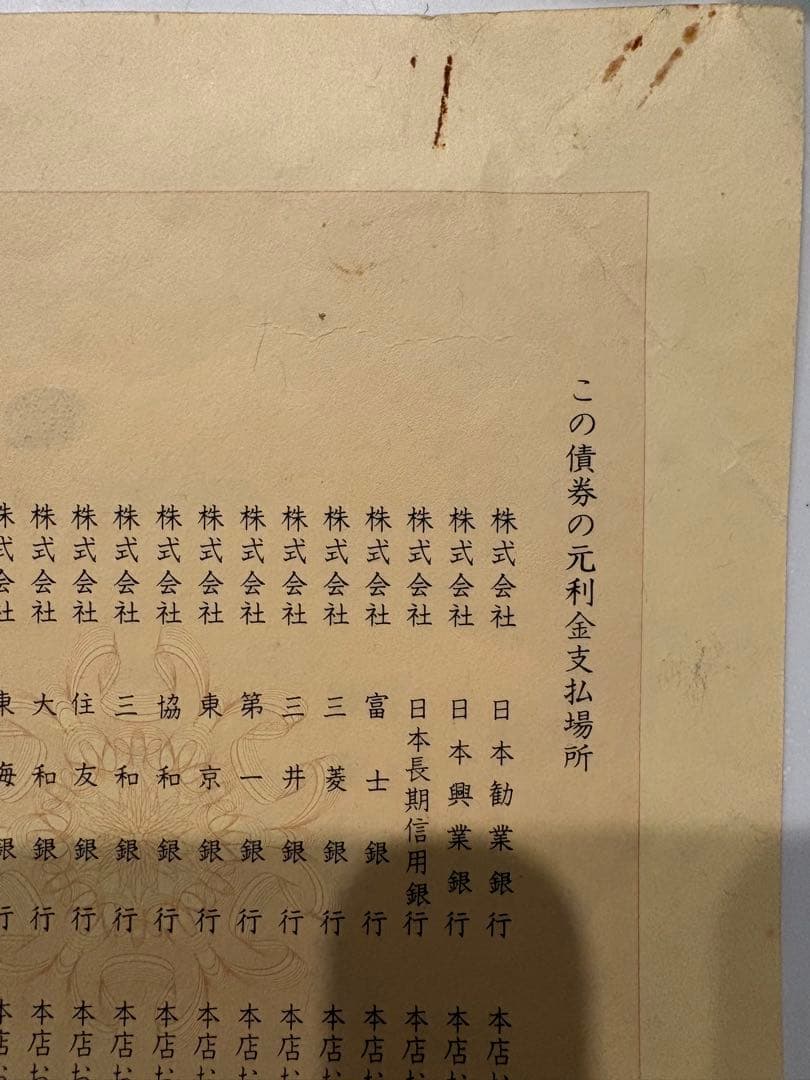 この債券の元利金支払場所
株式会社 日本勧業銀行 本店お
株式会社 日本興業銀行 本店お
株式会社 日本長期信用銀行 本店お
株式会社 富士銀行 本店お
株式会社 三菱銀行 本店お
株式会社 三井銀行 本店お
株式会社 第一銀行 本店お
株式会社 東京銀行 本店お
株式会社 協和銀行 本店お
株式会社 三和銀行 本店お
株式会社 住友銀行 本店お
株式会社 大和銀行 本店お
株式会社 東海銀行 本店お